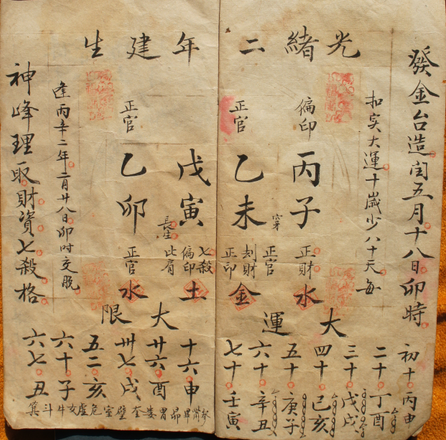 光緒二年建生
發金台造闰五月十八日卯時
扣实大运十歲少八十天每
偏印
丙子
正財
水
正官
乙未
正官
刦財
正印
金
戊寅
長生
七殺
偏印
比肩
土
正官
乙卯
正官
水
逢丙辛二年二月廿八日卯时交脱
神峰理取財資七殺格
大運
初十丙申
二十丁酉
三十戊戌
四十己亥
五十庚子
六十辛丑
七十壬寅
大限
十六申
廿六酉
卅七戌
五二亥
六十子
六七丑
畢昴胃婁奎壁室危虛女牛斗箕